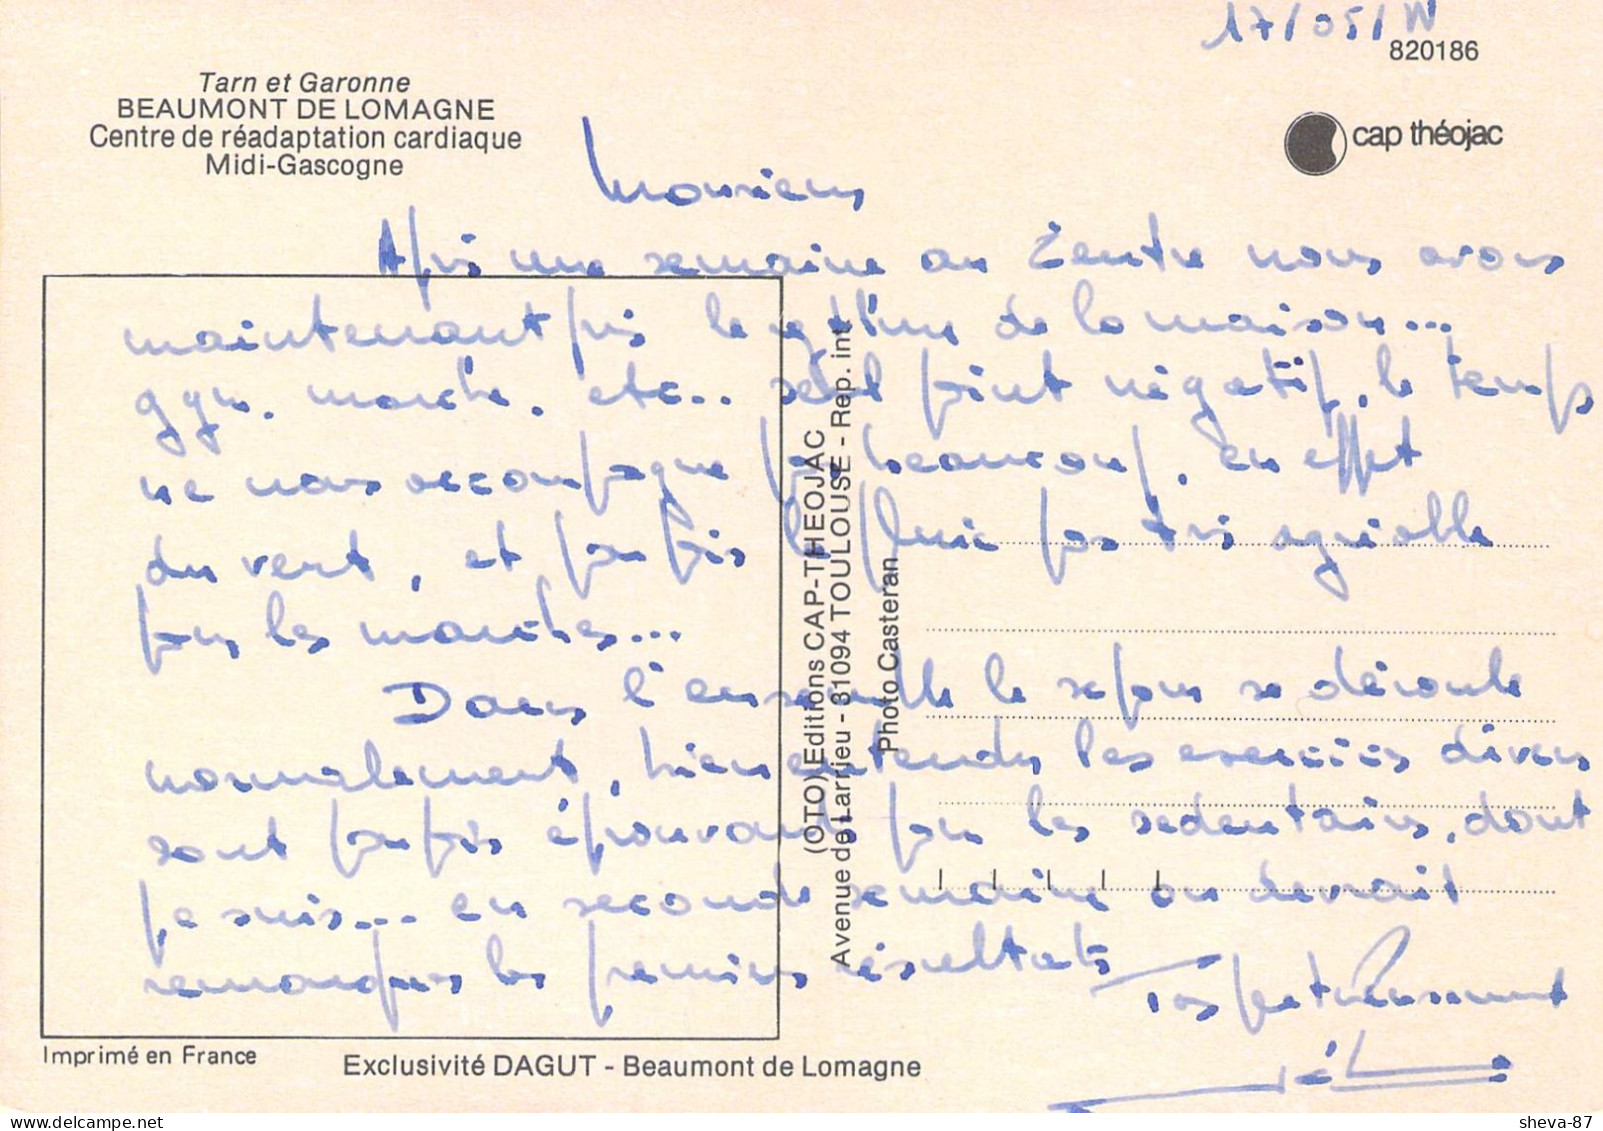 17/05/
820186
Tarn et Garonne
BEAUMONT DE LOMAGNE
Centre de réadaptation cardiaque
Midi-Gascogne
cap théojac
Monsieur
Après une semaine au Centre nous avons
maintenant pris le rythme de la maison...
gym. marche. etc... seul point négatif, le temps
ne nous accompagne pas beaucoup, en effet
du vent, et parfois la pluie pas très agréable
pour les marches...
Dans l'ensemble le séjour se déroule
normalement, bien entendu les exercices divers
sont parfois épouvants pour les sédentaires, dont
je suis... en seconde semaine on devrait
remarquer les premiers résultats
Respectueusement
(OTO) Editions CAP-THEOJAC
Avenue de Larrieu - 31094 TOULOUSE - Rep. int.
Photo Casteran
Imprimé en France
Exclusivité DAGUT - Beaumont de Lomagne
sheva-87